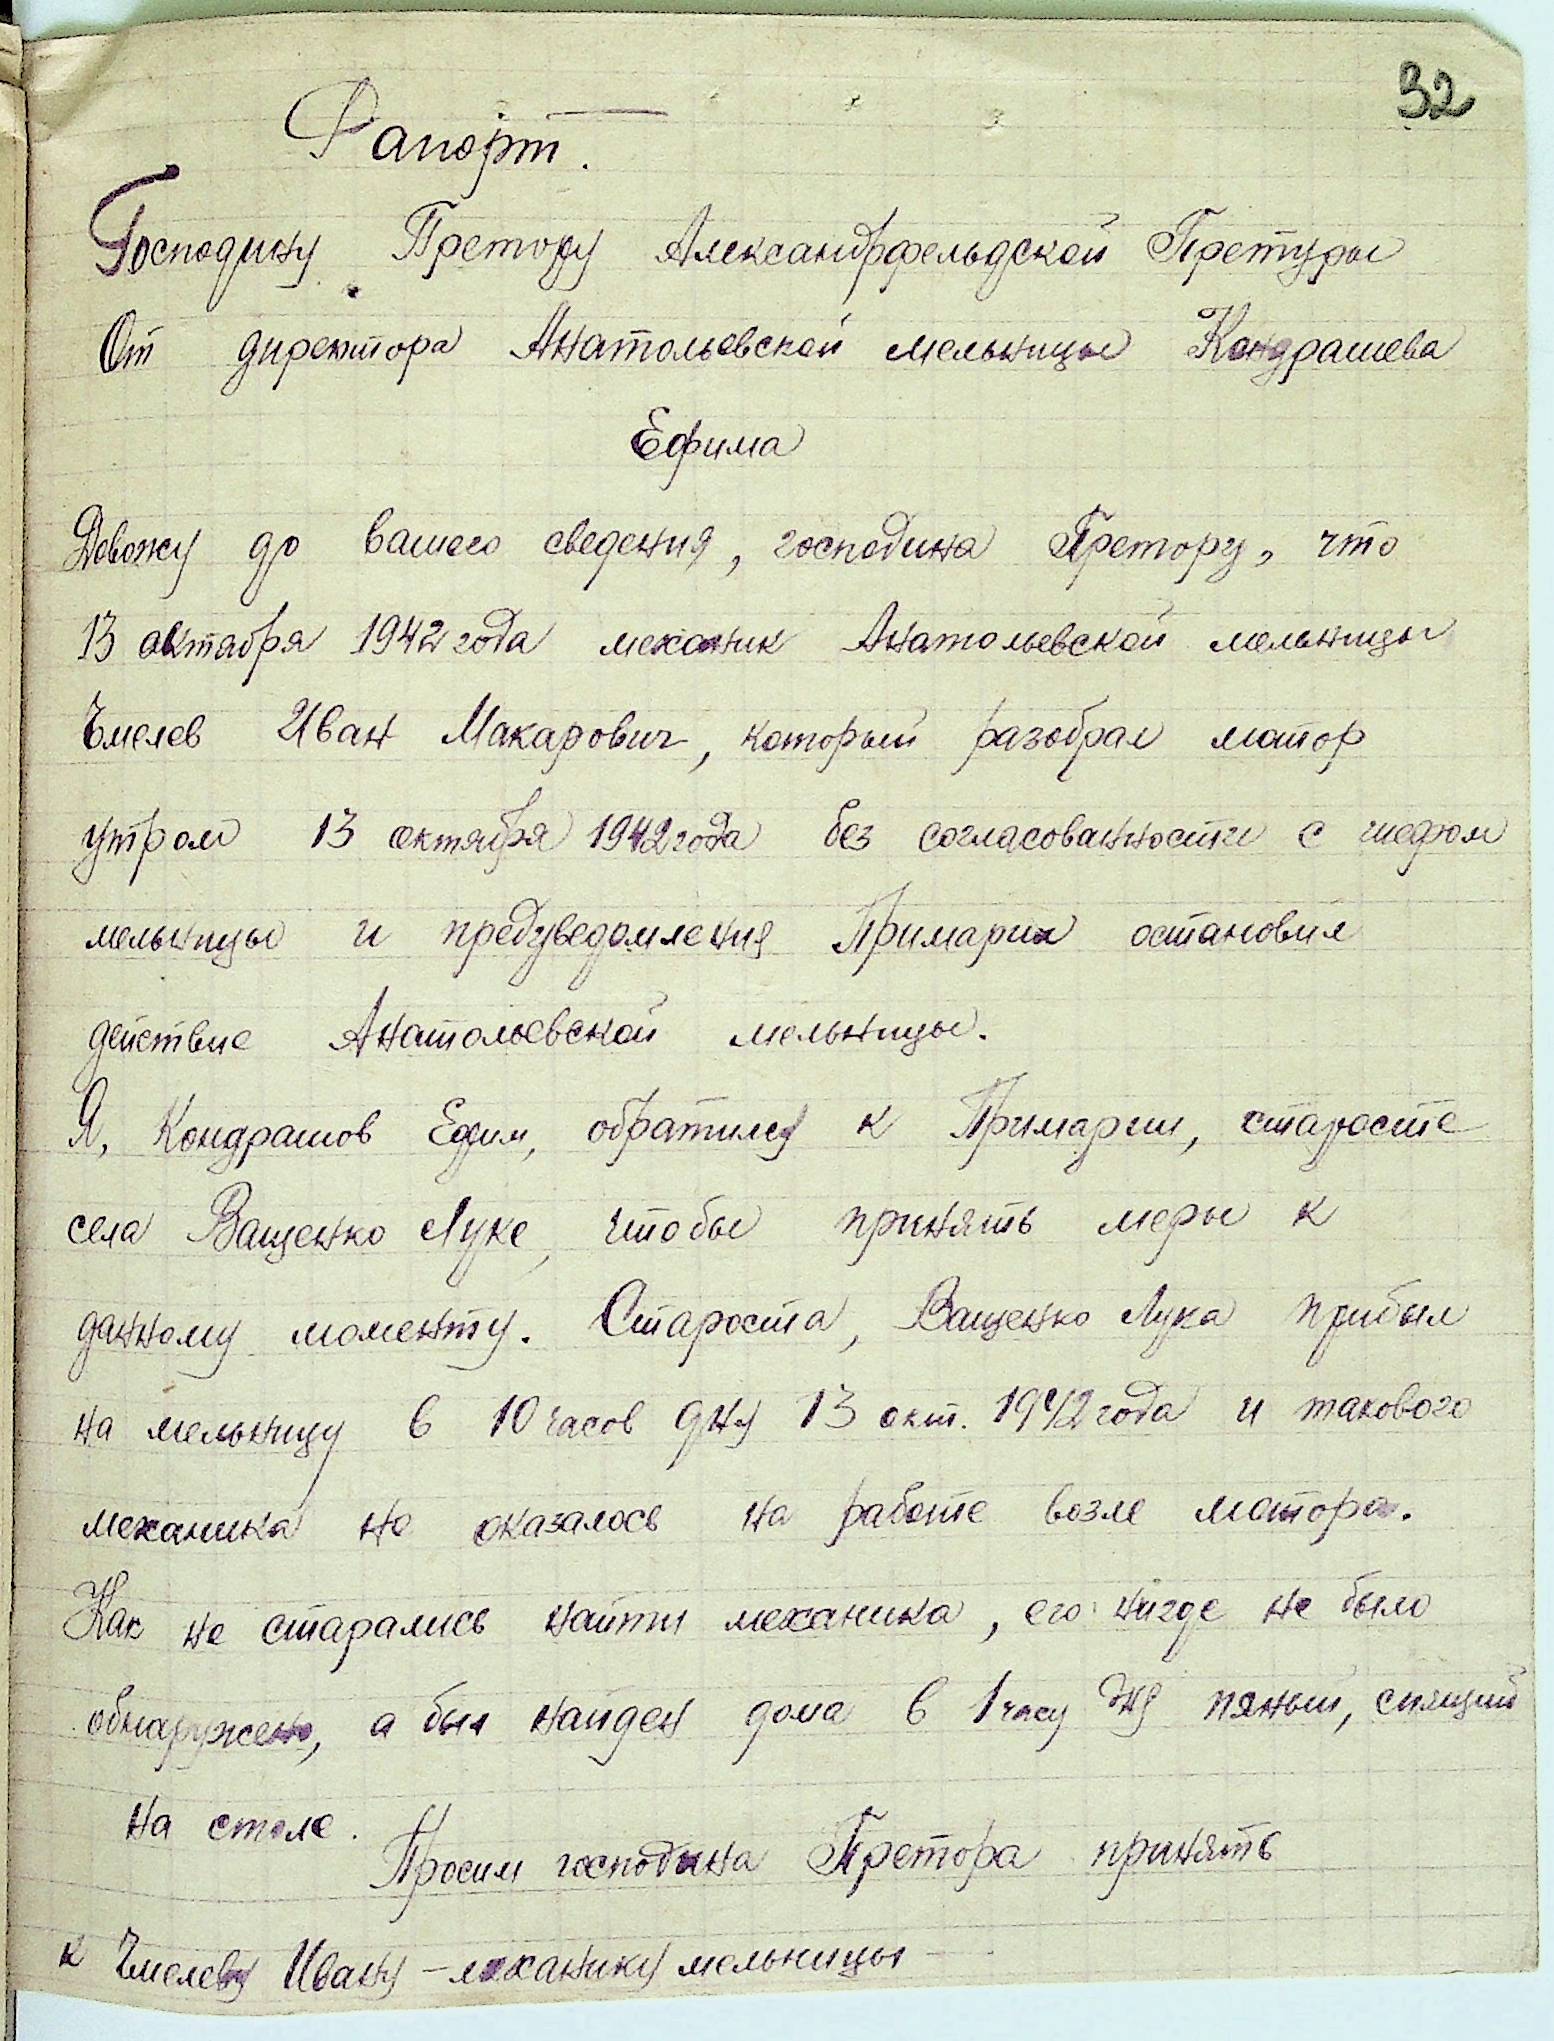 32
Рапорт.
Господину Претору Александрфельдской Претуры
От директора Анатольевской мельницы Кондрашева
Ефима
Довожу до вашего сведения, господина Претору, что
13 октября 1942 года механик Анатольевской мельницы
Чмелев Иван Макарович, который разобрал мотор
утром 13 октября 1942 года без согласованности с шефом
мельницы и предуведомления Примарии остановил
действие Анатольевской мельницы.
Я, Кондрашов Ефим, обратился к Примарии, старосте
села Ващенко Луке, чтобы принять меры к
данному моменту. Староста, Ващенко Лука прибыл
на мельницу в 10 часов дня 13 окт. 1942 года и такового
механика не оказалось на работе возле мотора.
Как не старались найти механика, его нигде не было
обнаружено, а был найден дома в 1 часу дня пяный, спящий
на столе.
Просим господина Претора принять
к Чмелеву Ивану – механику мельницы